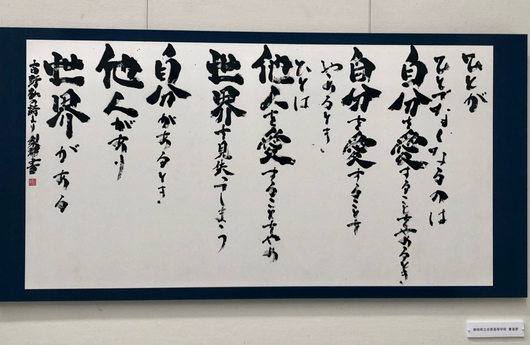 ひとが
ひとでなくなるのは
自分を愛することをやめるとき
自分を愛することを
やめるとき
ひとは
他人を愛することをやめ
世界を見失ってしまう
自分があるとき
他人があり
世界がある
吉野弘の詩より 書